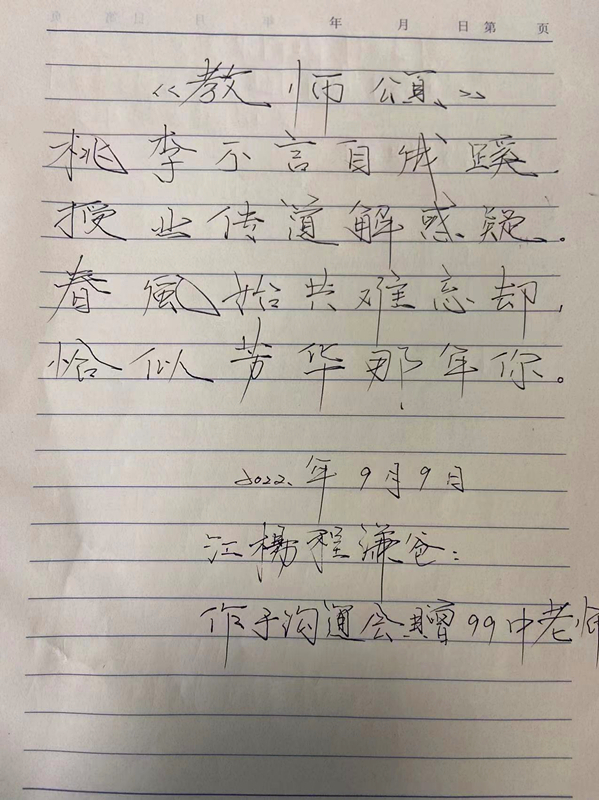 年 月 日 第 页
《教师颂》
桃李不言自成蹊,
授业传道解惑疑。
春風拾共难忘却,
恰似芳华那年你。
2022年9月9日
江楊程谦爸:
作于沟通会赠99中老师